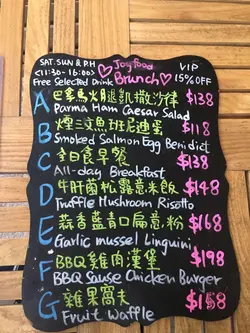 SAT. SUN & P.H
<11:30-16:00>
Free Selected Drink
Joyfood
Brunch
VIP
15% OFF
A 巴拿馬火腿凱撒沙律 $138
Parma Ham Caesar Salad
B 煙三文魚班尼迪蛋 $118
Smoked Salmon Egg Benidict
C 全日食早餐 $138
All-day Breakfast
D 牛肝菌松露意米飯 $148
Truffle Mushroom Risotto
E 蒜香藍青口扁意粉 $168
Garlic mussel Linguini
F BBQ雞肉漢堡 $198
BBQ Sause Chicken Burger
G 雜果窩夫 $158
Fruit Waffle